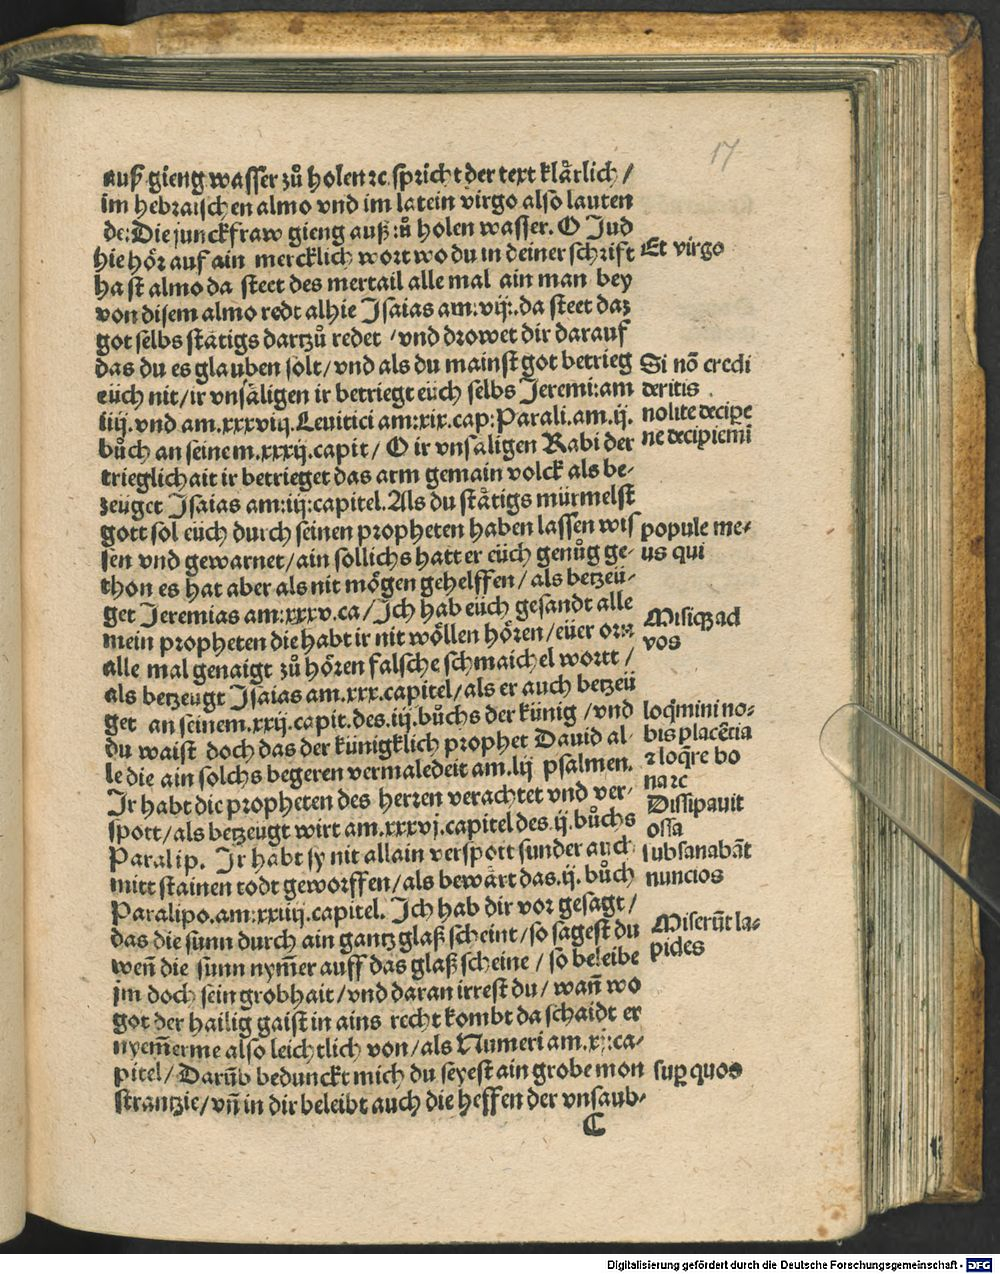 17
auß gieng wasser zů holen ꝛc. spricht der text klårlich /
im hebraischen almo vnd im latein virgo also lauten
de: Die junckfraw gieng auß zů holen wasser. O Jud
hie hör auf ain mercklich wort wo du in deiner schrift
hast almo da steet des mertail alle mal ain man bey
von disem almo redt alhie Isaias am. vij. da steet daz
got selbs ståtigs dartzů redet / vnd drowet dir darauf
das du es glauben solt / vnd als du mainst got betrieg
eüch nit / ir vnsåligen ir betriegt eüch selbs Jeremi: am
iiij. vnd am. xxxviij. Leuitici am: xix. cap: Parali. am. ij.
bůch an seinem. xxxij. capit / O ir vnsaligen Rabi der
trieglichait ir betrieget das arm gemain volck als be-
zeuget Isaias am: iij: capitel. Als du ståtigs mürmelst
gott sol eüch durch seinen propheten haben lassen wis
sen vnd gewarnet / ain sollichs hatt er eüch genůg ge-
thon es hat aber als nit mögen gehelffen / als betzeü-
get Jeremias am: xxxv. ca / Ich hab eüch gesandt alle
mein propheten die habt ir nit wöllen hören / eüer orn
alle mal genaigt zů hören falsche schmaichel wortt /
als betzeugt Isaias am. xxx. capitel / als er auch betzeü
get an seinem. xxij. capit. des. iij. bůchs der künig / vnd
du waist doch das der künigklich prophet Dauid al-
le die ain solchs begeren vermaledeit am. lij psalmen.
Ir habt die propheten des herren verachtet vnd ver-
spott / als betzeugt wirt am. xxxvj. capitel des. ij. bůchs
Paralip. Ir habt sy nit allain verspott sunder auch
mitt stainen todt geworffen / als bewårt das. ij. bůch
Paralipo. am: xxiiij. capitel. Ich hab dir vor gesagt /
das die sunn durch ain gantz glaß scheint / so sagest du
weñ die sunn nym̃er auff das glaß scheine / so beleibe
jm doch sein grobhait / vnd daran irrest du / wañ wo
got der hailig gaist in ains recht kombt da schaidt er
nyem̃erme also leichtlich von / als Numeri am. xj: ca-
pitel / Darũb bedunckt mich du seyest ain grobe mon
strantzie / vñ in dir beleibt auch die heffen der vnsaub-
C
Et virgo
Si nõ credi
deritis
nolite decipe
ne decipiemi
popule me-
us qui
Misiqꝫ ad
vos
loq̃mini no-
bis placẽtia
ꝛ loq̃re bo
na ꝛc
Dissipauit
ossa
subsanabãt
nuncios
Miserũt la-
pides
sup̱ quos
Digitalisierung gefördert durch die Deutsche Forschungsgemeinschaft - DFG